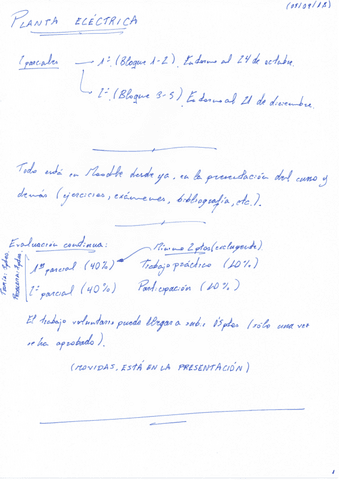 (09/09/18)
PLANTA ELÉCTRICA
2 parciales
1º (Bloque 1-2). Entorno al 24 de octubre.
2º (Bloque 3-5). Entorno al 21 de diciembre.
Todo está en Moodle desde ya, en la presentación del curso y
demás (ejercicios, exámenes, bibliografía, etc.).
Evaluación continua:
Mínimo 2 ptos (excluyente)
1er parcial (40%) Trabajo práctico (10%)
2º parcial (40%) Participación (10%)
El trabajo voluntario puede llegar a subir ptos (sólo una vez
se ha aprobado).
(MOVIDAS, ESTÁ EN LA PRESENTACIÓN)
1